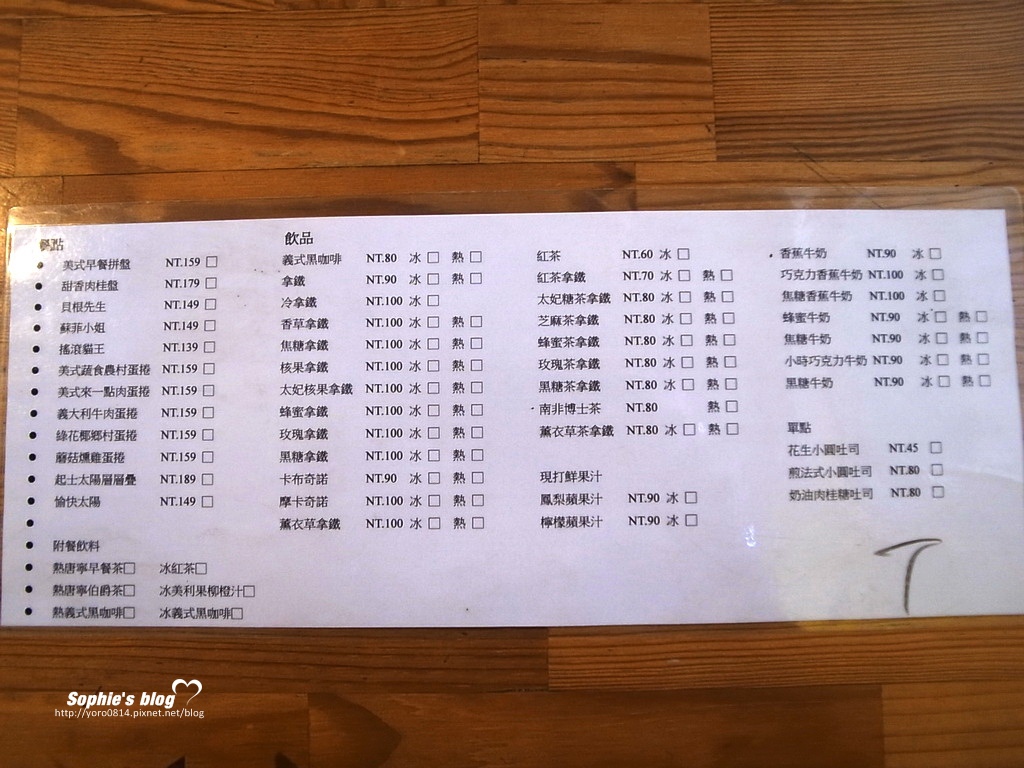 餐點
美式早餐拼盤 NT.159 □
甜香肉桂盤 NT.179 □
貝根先生 NT.149 □
蘇菲小姐 NT.149 □
搖滾貓王 NT.139 □
美式蔬食農村蛋捲 NT.159 □
美式來一點肉蛋捲 NT.159 □
義大利牛肉蛋捲 NT.159 □
綠花椰鄉村蛋捲 NT.159 □
蘑菇燻雞蛋捲 NT.159 □
起士太陽層層疊 NT.189 □
愉快太陽 NT.149 □
附餐飲料
熱唐寧早餐茶□ 冰紅茶□
熱唐寧伯爵茶□ 冰美利果柳橙汁□
熱義式黑咖啡□ 冰義式黑咖啡□
飲品
義式黑咖啡 NT.80 冰 □ 熱 □
拿鐵 NT.90 冰 □ 熱 □
冷拿鐵 NT.100 冰 □
香草拿鐵 NT.100 冰 □ 熱 □
焦糖拿鐵 NT.100 冰 □ 熱 □
核果拿鐵 NT.100 冰 □ 熱 □
太妃核果拿鐵 NT.100 冰 □ 熱 □
蜂蜜拿鐵 NT.100 冰 □ 熱 □
玫瑰拿鐵 NT.100 冰 □ 熱 □
黑糖拿鐵 NT.100 冰 □ 熱 □
卡布奇諾 NT.90 冰 □ 熱 □
摩卡奇諾 NT.100 冰 □ 熱 □
薰衣草拿鐵 NT.100 冰 □ 熱 □
紅茶 NT.60 冰 □
紅茶拿鐵 NT.70 冰 □ 熱 □
太妃糖茶拿鐵 NT.80 冰 □ 熱 □
芝麻茶拿鐵 NT.80 冰 □ 熱 □
蜂蜜茶拿鐵 NT.80 冰 □ 熱 □
玫瑰茶拿鐵 NT.80 冰 □ 熱 □
黑糖茶拿鐵 NT.80 冰 □ 熱 □
南非博士茶 NT.80 熱 □
薰衣草茶拿鐵 NT.80 冰 □ 熱 □
現打鮮果汁
鳳梨蘋果汁 NT.90 冰 □
檸檬蘋果汁 NT.90 冰 □
香蕉牛奶 NT.90 冰 □
巧克力香蕉牛奶 NT.100 冰 □
焦糖香蕉牛奶 NT.100 冰 □
蜂蜜牛奶 NT.90 冰 □ 熱 □
焦糖牛奶 NT.90 冰 □ 熱 □
小時巧克力牛奶 NT.90 冰 □ 熱 □
黑糖牛奶 NT.90 冰 □ 熱 □
單點
花生小圓吐司 NT.45 □
煎法式小圓吐司 NT.80 □
奶油肉桂糖吐司 NT.80 □
T
Sophie's blog
http://yoro0814.pixnet.net/blog